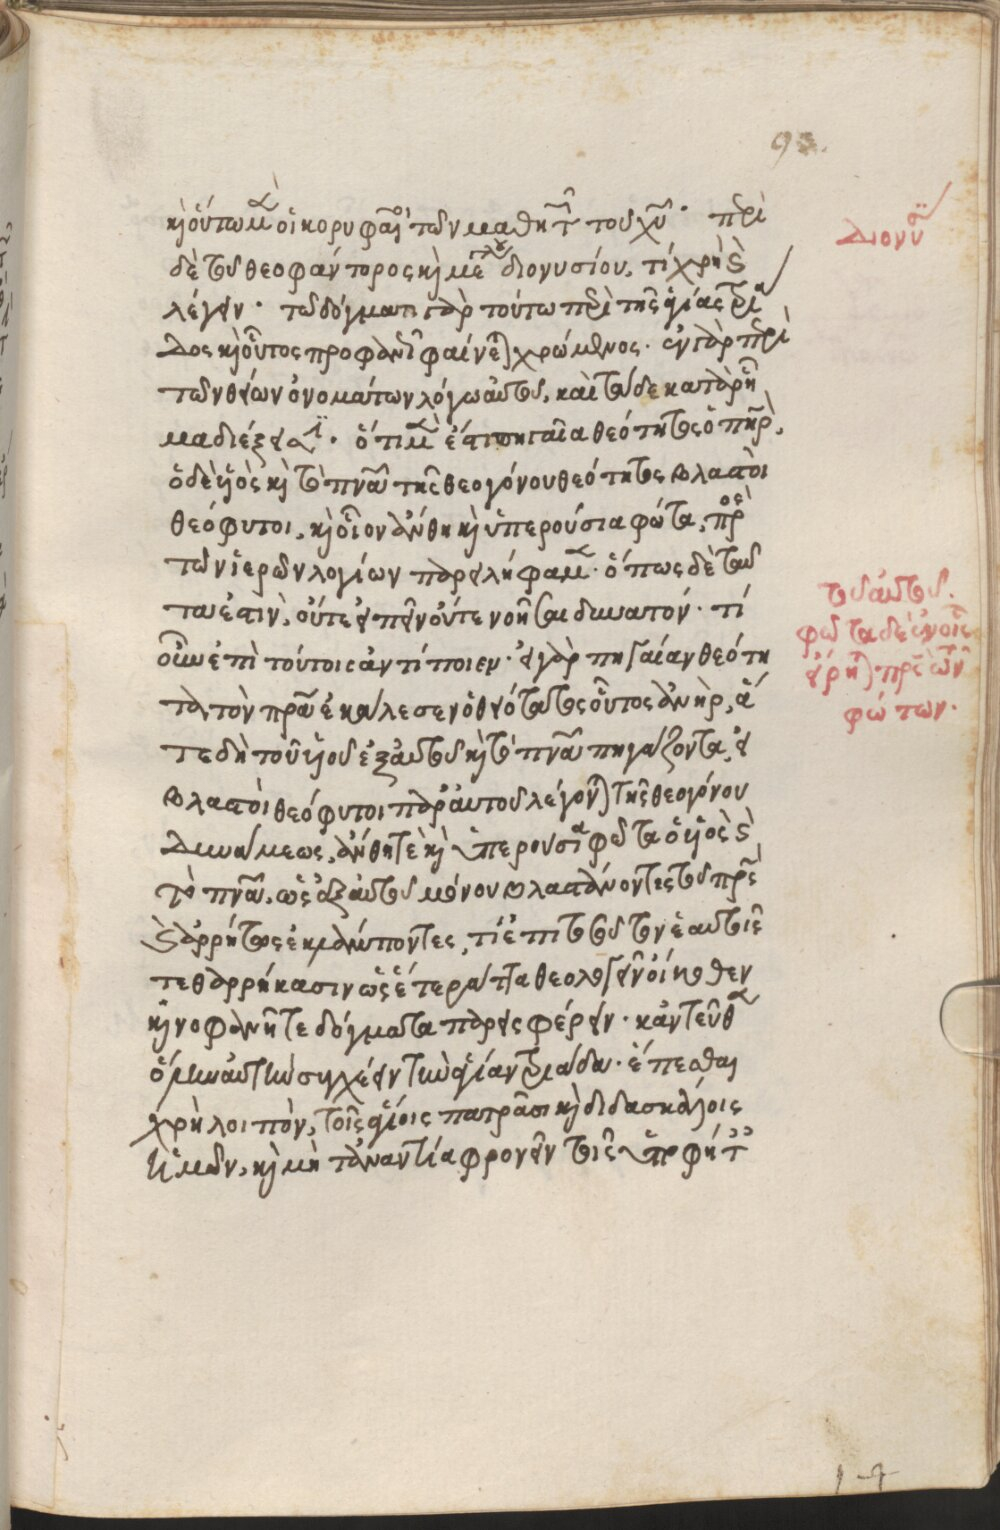 93.
κ οὕτω μ οἱ κορυφαῖοι τῶν μαθητ τοῦ χῦ· περὶ
δὲ τοῦ θεοφάντορος κ μεγάλου διονυσίου, τί χρὴ κ
λέγειν· τῶ δόγματι γὰρ τούτω περὶ τῆς ἁγίας τριά
δος κ οὗτος προφανῶς φαίνεται χρώμενος· ἐν γὰρ περὶ
τῶν θείων ὀνομάτων λόγω αὐτοῦ, καὶ τάδε κατὰ ῥῆ
μα διέξεισι· ὅτι μ ἐστι πηγαῖα θεότητος ὁ πηρ,
ὁ δὲ υἱὸς κ τὸ πνᾶ τῆς θεογόνου θεότητος βλαστοὶ
θεόφυτοι, κ οἷον ἄνθη κ ὑπερούσια φῶτα, πρὸς
τῶν ἱερῶν λογίων παρειλήφαμεν· ὅπως δὲ ταῦ
τα ἐστὶν, οὔτε εἰπεῖν οὔτε νοῆσαι δυνατόν· τί
οὖν ἐπὶ τούτοις ἀντίποιεν· εἰ γὰρ πηγαίαν θεότη
τα τὸν πρᾶ ἐκάλεσεν ὁ θειότατος οὗτος ἀνὴρ, ἅ
τε δὴ τοῦ υἱοῦ ἐξ αὐτοῦ κ τὸ πνᾶ πηγάζοντα, εἰ
βλαστοὶ θεόφυτοι παρ' αὐτοῦ λέγονται τῆς θεογόνου
δυνάμεως, ἄνθη τὲ κ ὑπερούσια φῶτα ὁ υἱὸς κ
τὸ πνᾶ, ὡς ἐξ αὐτοῦ μόνου βλαστάνοντες τοῦ πρς
κ ἀρρήτως ἐκλάμποντες, τί ἐπὶ τοῦτον ἑαυτοῖς
τεθαρρήκασιν ὡς ἕτερα ἄττα θεολογεῖν οἴκοθεν
κ κενοφανῆ τὲ δόγματα παρεισφέρειν· κἀντεῦθεν
ὁρμὴν αὐτὴν συγχέειν τὴν ἁγίαν τριάδα· ἕπεσθαι
χρὴ λοιπὸν, τοῖς ἁγίοις πατράσι κ διδασκάλοις
ἡμῶν, κ μὴ τἀναντία φρονεῖν τοῖς προφήτ
Διονυ
τοῦ αὐτοῦ.
φῶτα δὲ ἐνοῖς
εἴρηται πρὸς
φώτων·